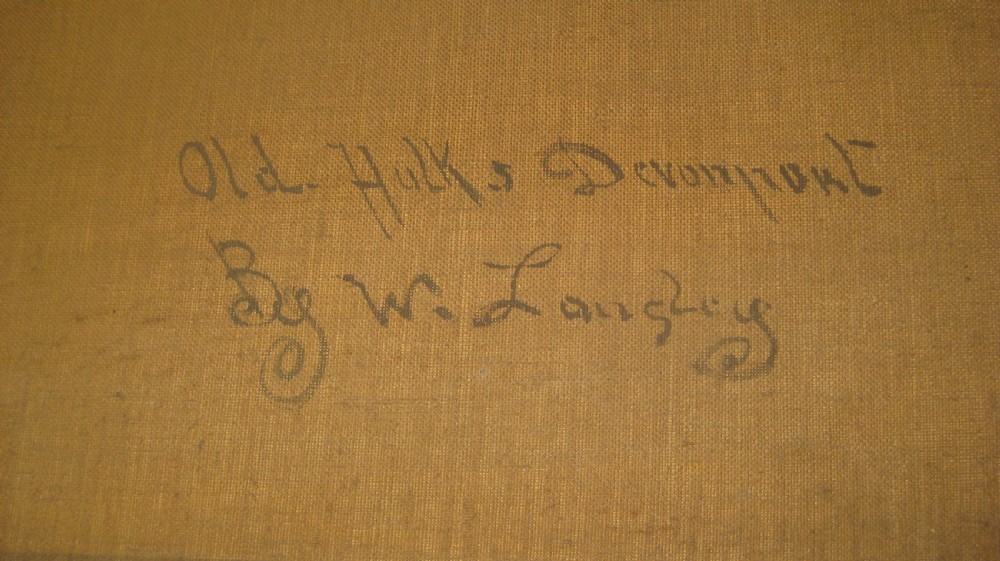 Old Hulks Devonport
By W. Langley